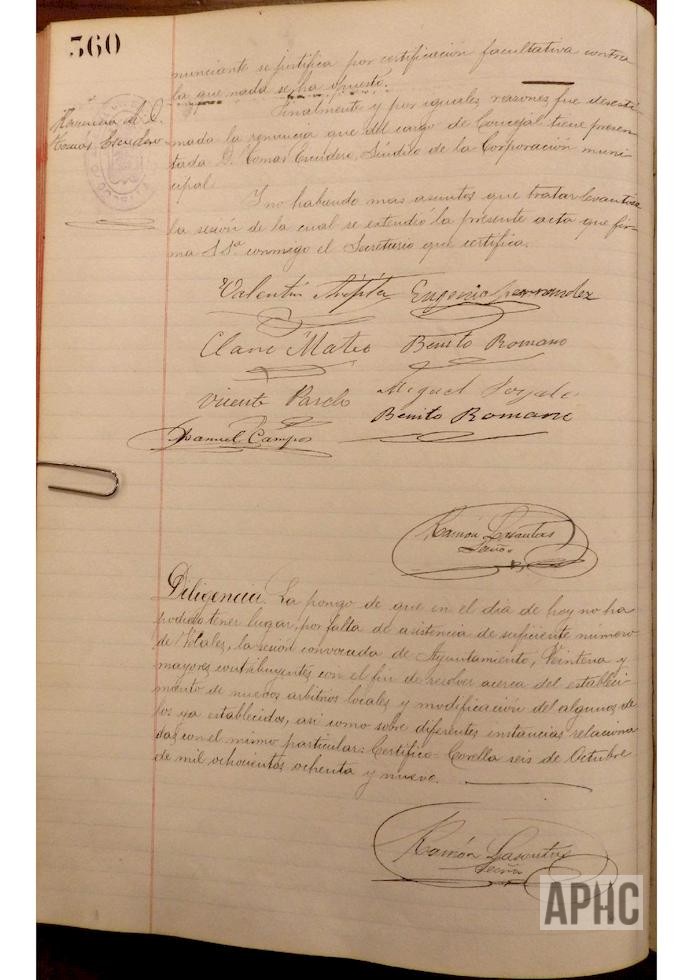 360
nunciante se justifica por certificación facultativa contra
la que nada se ha opuesto.
Renuncia de D.
Tomas Escudero
Finalmente y por iguales razones fue desesti
mada la renuncia que del cargo de Concejal tiene presen
tada D. Tomas Escudero, Síndico de la Corporación muni
cipal.
Y no habiendo mas asuntos que tratar levantose
la sesión de la cual se extendió la presente acta que fir
ma S Sª conmigo el Secretario que certifica.
Valentín Eugenio Fernandez
Mateo Benito Romano
Vicente Miguel
Benito Romano
Manuel Campos
Ramón Lasantas
Srio
Diligencia. La pongo de que en el día de hoy no ha
podido tener lugar, por falta de asistencia de suficiente número
de Vocales, la sesión convocada de Ayuntamiento, Veintena y
mayores contribuyentes con el fin de resolver acerca del estableci
miento de nuevos arbitrios locales y modificación del algunos de
los ya establecidos, asi como sobre diferentes instancias relaciona
das con el mismo particular: Certifico = Corella seis de Octubre
de mil ochocientos ochenta y nueve.
Ramón Lasantas
Srio
APHC